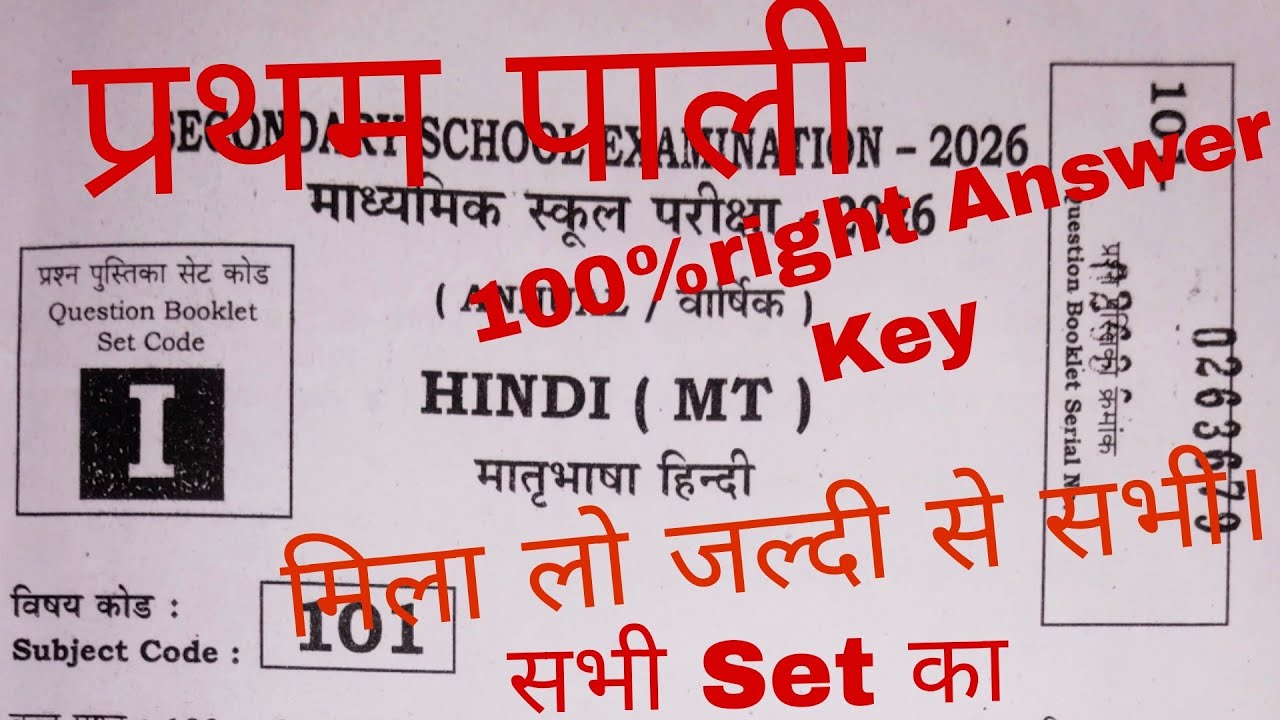 प्रथम पाली
SECONDARY SCHOOL EXAMINATION – 2026
माध्यमिक स्कूल परीक्षा - 2026
100%right Answer
Key
( ANNUAL / वार्षिक )
प्रश्न पुस्तिका सेट कोड
Question Booklet
Set Code
I
HINDI ( MT )
मातृभाषा हिन्दी
मिला लो जल्दी से सभी।
सभी Set का
विषय कोड :
Subject Code :
101
प्रश्न पुस्तिका क्रमांक
Question Booklet Serial
0263679